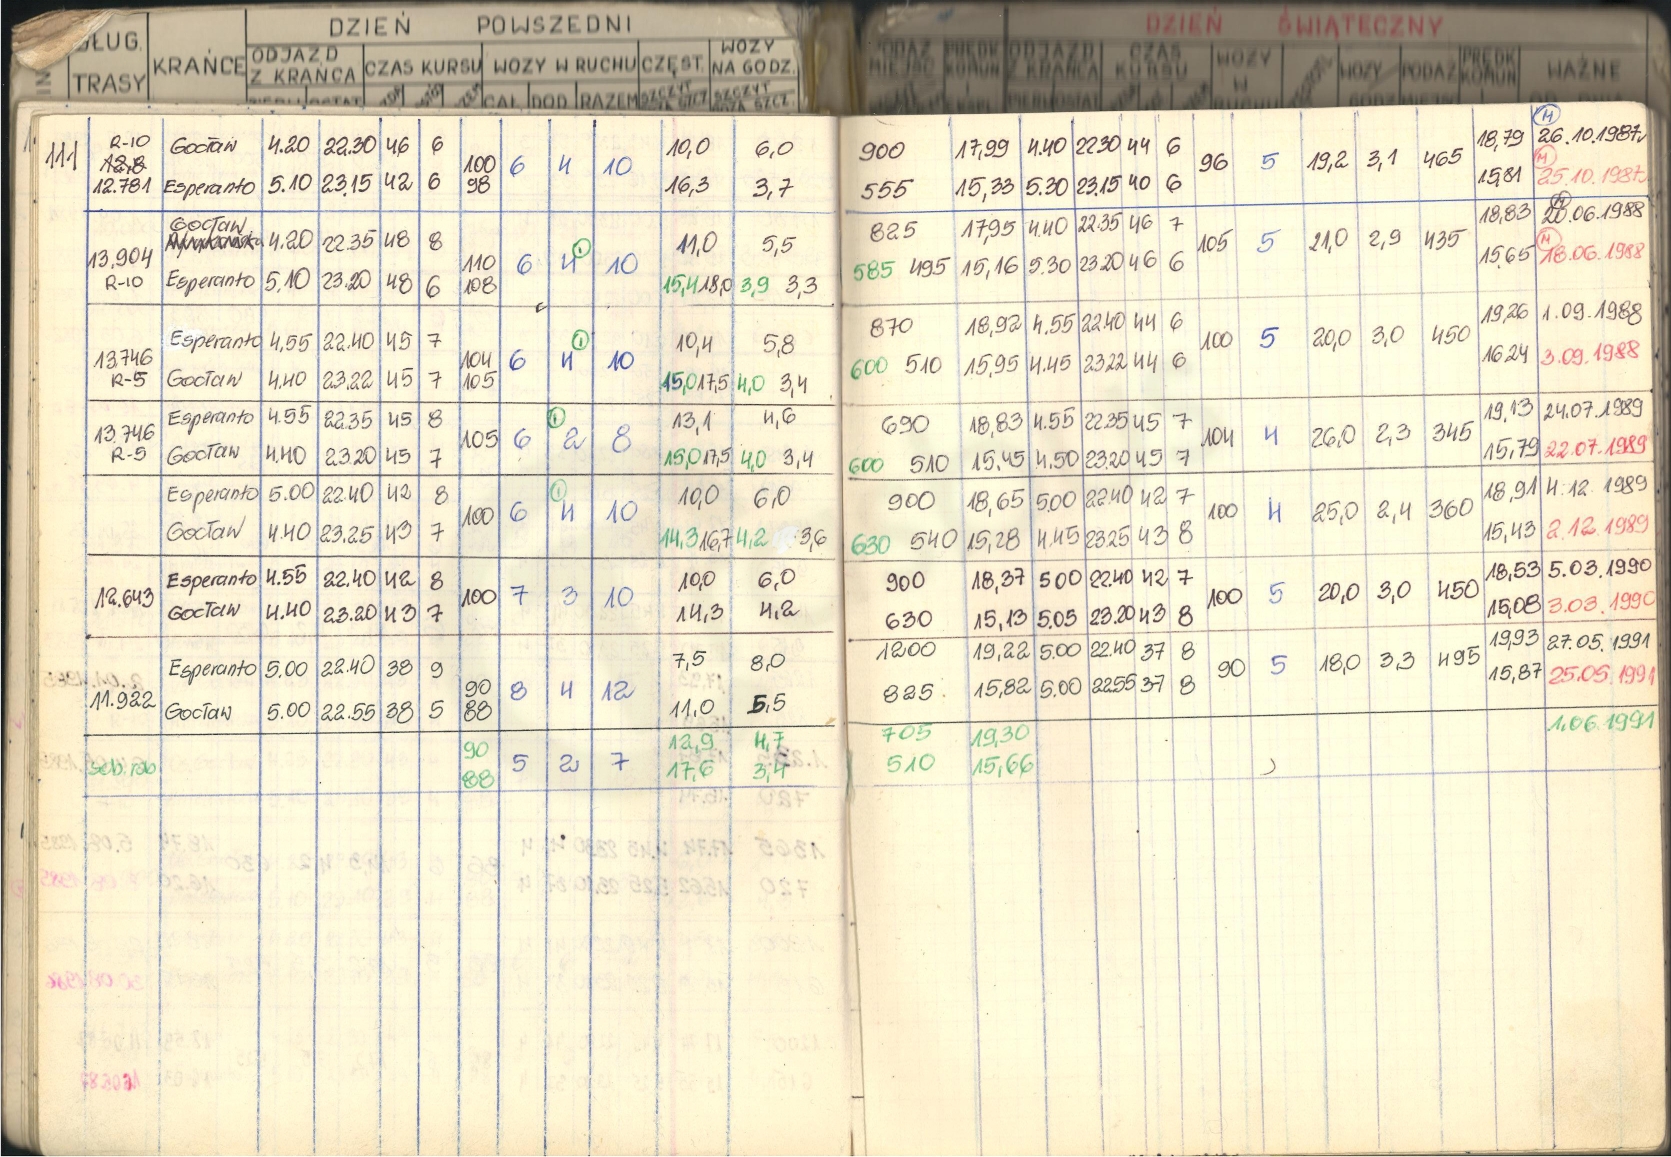 DZIEŃ POWSZEDNI DZIEŃ ŚWIĄTECZNY
DŁUG. TRASY KRAŃCE ODJAZD Z KRAŃCA CZAS KURSU WOZY W RUCHU CZĘST. WOZY NA GODZ. PODAŻ MIEJSC PRĘDK KOMUN ODJAZD Z KRAŃCA CZAS KURSU WOZY W RUCHU WOZY PODAŻ PRĘDK KOMUN WAŻNE
CAŁ. DOD. RAZEM SZCZYT SZCZYT
111 R-10 Gocław 4.20 22.30 46 6 10,0 6,0 900 17,99 4.40 22.30 44 6 18,79 M 26.10.1987r
12,8 100 6 4 10 96 5 19,2 3,1 465
12.781 Esperanto 5.10 23.15 42 6 98 16,3 3,7 555 15,33 5.30 23.15 40 6 15,81 M 25.10.1987r
Gocław 4.20 22.35 48 8 11,0 5,5 825 17,95 4.40 22.35 46 7 18,83 20.06.1988
13,904 110 6 4 1 10 105 5 21,0 2,9 435
R-10 Esperanto 5.10 23.20 48 6 108 15,4 18,0 3,9 3,3 585 495 15,16 5.30 23.20 46 6 15,65 M 18.06.1988
Esperanto 4,55 22.40 45 7 10,4 5,8 870 18,92 4.55 22.40 44 6 19,26 1.09.1988
13.746 104 6 4 1 10 100 5 20,0 3,0 450
R-5 Gocław 4.40 23.22 45 7 105 15,0 17,5 4,0 3,4 600 510 15,95 4.45 23.22 44 6 16,24 3.09.1988
Esperanto 4.55 22.35 45 8 13,1 4,6 690 18,83 4.55 22.35 45 7 19,13 24.07.1989
13.746 105 6 1 2 8 104 4 26,0 2,3 345
R-5 Gocław 4.40 23.20 45 7 15,0 17,5 4,0 3,4 600 510 15.45 4.50 23.20 45 7 15,79 22.07.1989
Esperanto 5.00 22.40 42 8 10,0 6,0 900 18,65 5.00 22.40 42 7 18,91 4.12.1989
100 6 1 4 10 100 4 25,0 2,4 360
Gocław 4.40 23.25 43 7 14,3 16,7 4,2 3,6 630 540 15,28 4.45 23.25 43 8 15,43 2.12.1989
Esperanto 4.55 22.40 42 8 10,0 6,0 900 18,37 5.00 22.40 42 7 18,53 5.03.1990
12.643 100 7 3 10 100 5 20,0 3,0 450
Gocław 4.40 23.20 43 7 14,3 4,2 630 15,13 5.05 23.20 43 8 15,08 3.03.1990
Esperanto 5.00 22.40 38 9 7,5 8,0 1200 19,22 5.00 22.40 37 8 19,93 27.05.1991
11.922 90 8 4 12 90 5 18,0 3,3 495
Gocław 5.00 22.55 38 5 88 11,0 5,5 825 15,82 5.00 22.55 37 8 15,87 25.05.1991
90 12,9 4,7 705 19,30 1.06.1991
sob. rob 5 2 7
88 17,6 3,4 510 15,66